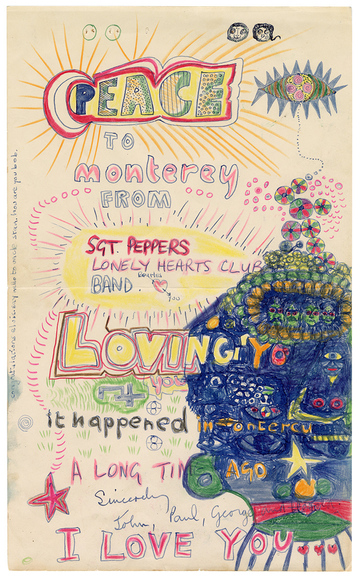 PEACE
TO
monterey
FROM
SGT PEPPERS
LONELY HEARTS CLUB
BAND.
LOVING YO
you
it happened in Monterey
A LONG TIM AGO
Sincerely
John, Paul, George and
I LOVE YOU